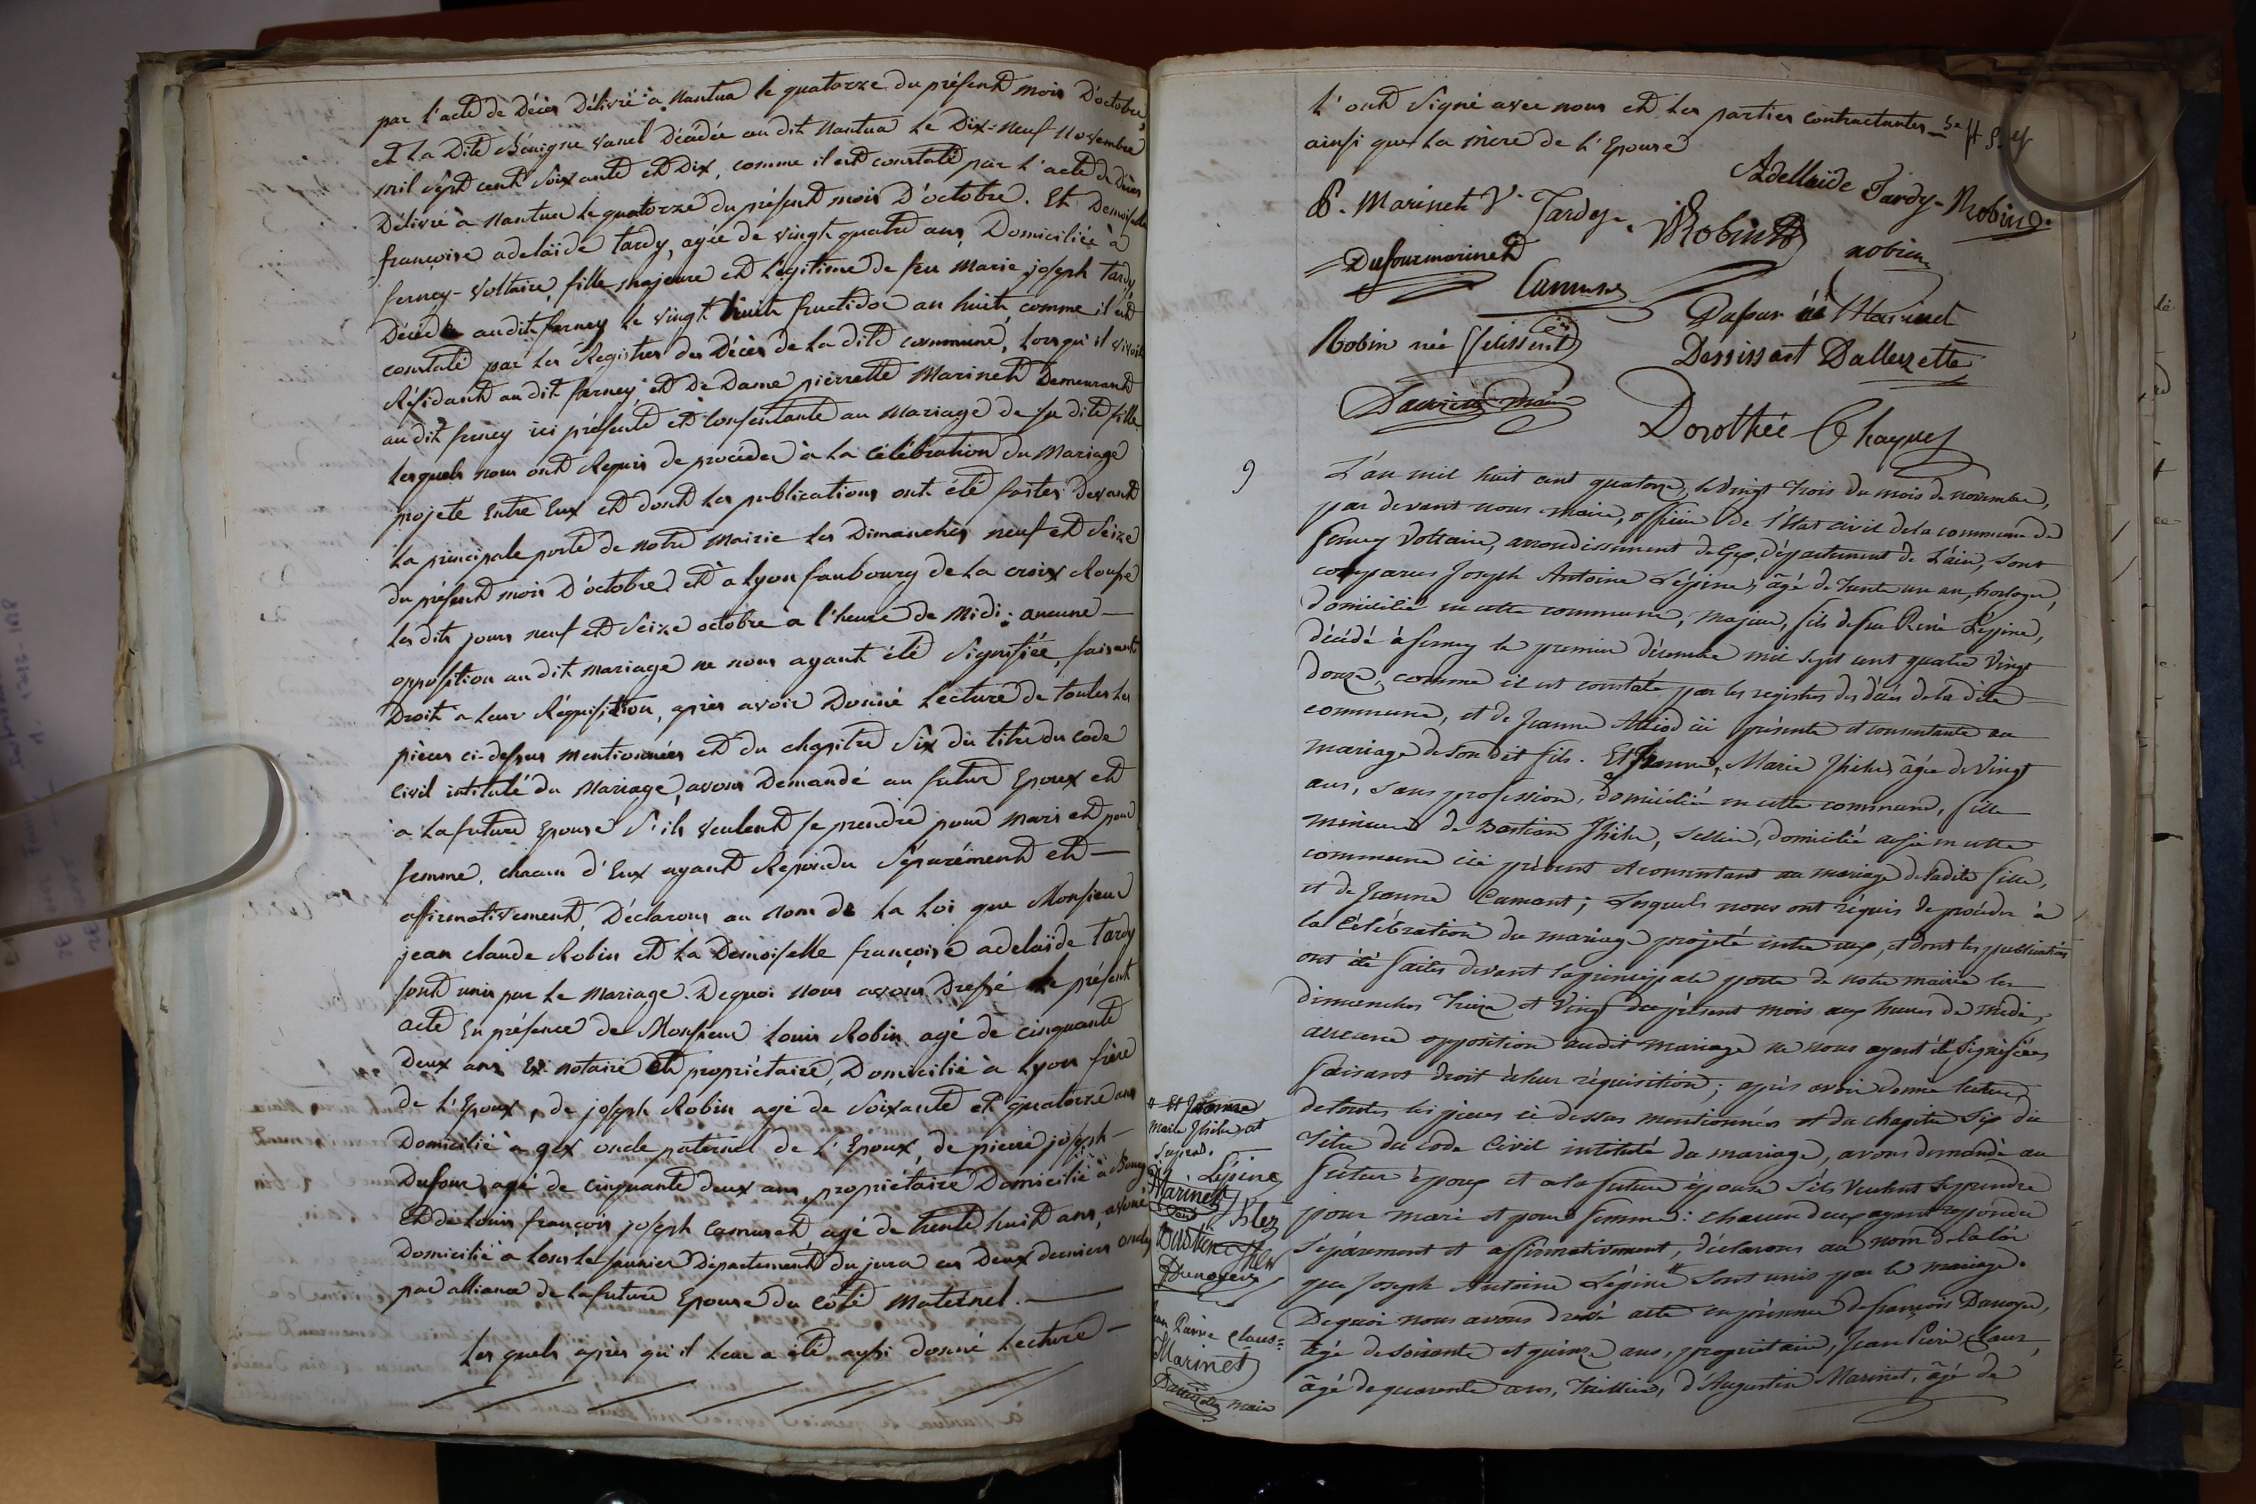 par l'acte de Décès Délivré à Nantua le quatorze du présent mois D'octobre,
et La Dite Bénigne vanel Décédée au dit Nantua Le Dix-neuf Novembre
mil sept cent soixante et Dix, comme il est constaté par l'acte de Décès
Délivré à Nantua le quatorze du présent mois D'octobre. Et Demoiselle
françoise adelaïde tardy, agée de vingt quatre ans, Domiciliée à
ferney-voltaire, fille majeure et Légitime de feu Marie joseph tardy,
Décédé audit ferney le vingt huit fructidor an huit, comme il est
constaté par les Registres des Décès de La dite commune, Lorsqu'il vivoit
Résidant au dit ferney, et de Dame pierrette Marinet Demeurant
au dit ferney ici présente et consentante au mariage de sa dite fille
Lesquels nous ont Requis de procéder à La célébration du Mariage
projeté Entre Eux et dont Les publications ont été faites devant
La principale porte de notre Mairie Les Dimanches neuf et seize
du présent mois D'octobre et à Lyon faubourg de La croix Rousse
Les dits jours neuf et seize octobre à l'heure de Midi; aucune
opposition au dit mariage ne nous ayant été signifiée, faisant
Droit à leur Réquisition, après avoir Donné Lecture de toutes Les
pièces ci-dessus mentionnées et du chapitre six du titre du code
Civil intitulé du Mariage, avons Demandé au futur Epoux et
à La future Epouse s'ils veulent se prendre pour mari et pour
femme, chacun d'Eux ayant Répondu séparément et
affirmativement, Déclarons au Nom de La Loi que Monsieur
jean claude Robin et La Demoiselle françoise adelaïde tardy
sont unis par Le Mariage. De quoi nous avons Dressé le présent
acte En présence de Monsieur Louis Robin agé de cinquante
Deux ans Ex notaire et propriétaire, Domicilié à Lyon frère
de l'Epoux, de joseph Robin agé de soixante et quatorze ans
Domicilié à gex oncle paternel de L'Epoux, de pierre joseph
Dufour, agé de cinquante deux ans, propriétaire Domicilié à Bourg
et de Louis françois joseph Camuset agé de trente huit ans, avoué
Domicilié à Lons Le saunier Département du jura ces Deux derniers oncles
par alliance de La future Epouse du côté Maternel.
Lesquels après qu'il leur a été aussi donné Lecture
L'ont signé avec nous et Les parties contractantes
ainsi que La mère de l'Epouse
Adellaïde Tardy-Robin.
P. Marinet V. Tardy. Robin
Dufourmarinet
Camuset
Dufour né Marinet
Robin née
Dallezette
maire
Dorothée
9
L'an mil huit cent quatorze, le vingt trois du mois de novembre,
par devant nous maire, officier de l'état civil de la commune de
ferney Voltaire, arrondissement de Gex, département de L'ain, sont
comparus Joseph Antoine Lépine, âgé de trente un an, horloger,
domicilié en cette commune, majeur, fils de feu René Lépine,
décédé à ferney le premier décembre mil sept cent quatre vingt
douze, comme il est constaté par les registres des décès de la dite
commune, et de Jeanne ici présente et consentante au
mariage de son dit fils. Et Jeanne, Marie âgée de vingt
ans, sans profession, domiciliée en cette commune, fille
mineure de Bastian sellier, domicilié aussi en cette
commune ici présent et consentant au mariage de sadite fille,
et de Jeanne Camant; Lesquels nous ont réquis de procéder à
la Célébration du mariage projeté entre eux, et dont les publications
ont été faites devant la principale porte de notre mairie les
dimanches treize et Vingt du présent mois aux heures de midi,
aucune opposition audit mariage ne nous ayant été signifiée,
faisant droit à leur réquisition; après avoir donné lecture
de toutes les pièces ci dessus mentionnées et du chapitre six du
titre du code Civil intitulé du mariage, avons demandé au
futur époux et a la future épouse s'ils veulent se prendre
pour mari et pour femme: chacun d'eux ayant répondu
séparément et affirmativement, déclarons au nom de la loi
que Joseph Antoine Lépine # sont unis par le mariage.
De quoi nous avons dressé acte en présence de françois Dunoyer,
âgé de soixante et quinze ans, propriétaire, Jean Pierre Claus,
âgé de quarante ans, d'Augustin Marinet, âgé de
# Et Jeanne
marie
Lépine
Marinet
Dunoyer
Jean Pierre Claus
Marinet
maire